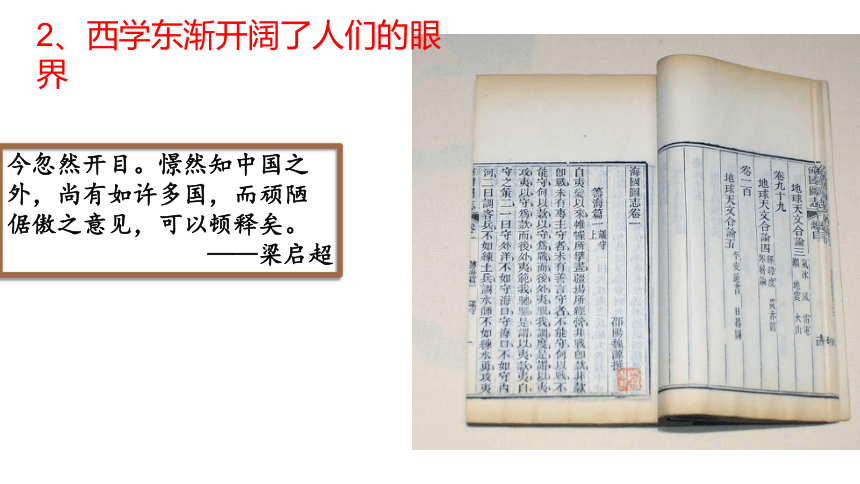 2、西学东渐开阔了人们的眼
界
今忽然开目。憬然知中国之
外，尚有如许多国，而顽陋
倨傲之意见，可以顿释矣。
——梁启超
地球天文合論三
卷九十九
地球天文合論四
卷一百
地球天文合論五 平安通書 日晷圖
海國圖志卷一
邵陽魏源撰
籌海篇一 議守上
自夷變以來帷幄所擘畫疆場所經營非戰即款非款
即戰未有專主守者未有善言守者不能守何以戰不
能守何以款以守爲戰而後外夷服我調度是謂以夷
攻夷以守爲款而後外夷範我馳驅是謂以夷款夷自
守之策二一曰守外洋不如守海口守海口不如守內
河二曰調客兵不如練土兵調水師不如練水勇攻夷